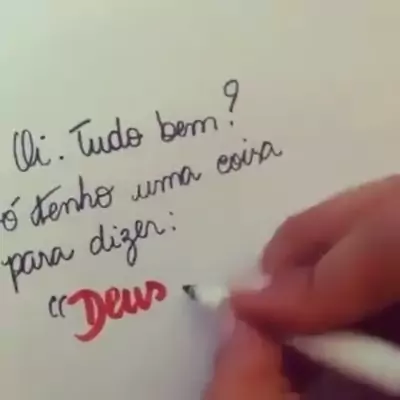 Oi. Tudo bem?
ó tenho uma coisa
para dizer:
"Deus